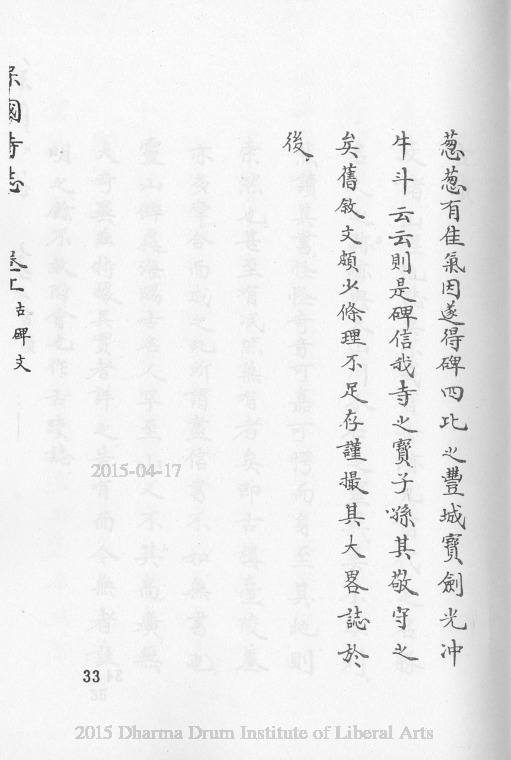 葱葱有佳氣因遂得碑四比之豐城寶劍光冲
牛斗云云則是碑信我寺之寶子孫其敬守之
矣舊敘文頗少條理不足存謹撮其大畧誌於
後
保國寺志 卷上 古碑文
2015-04-17
33
2015 Dharma Drum Institute of Liberal Arts